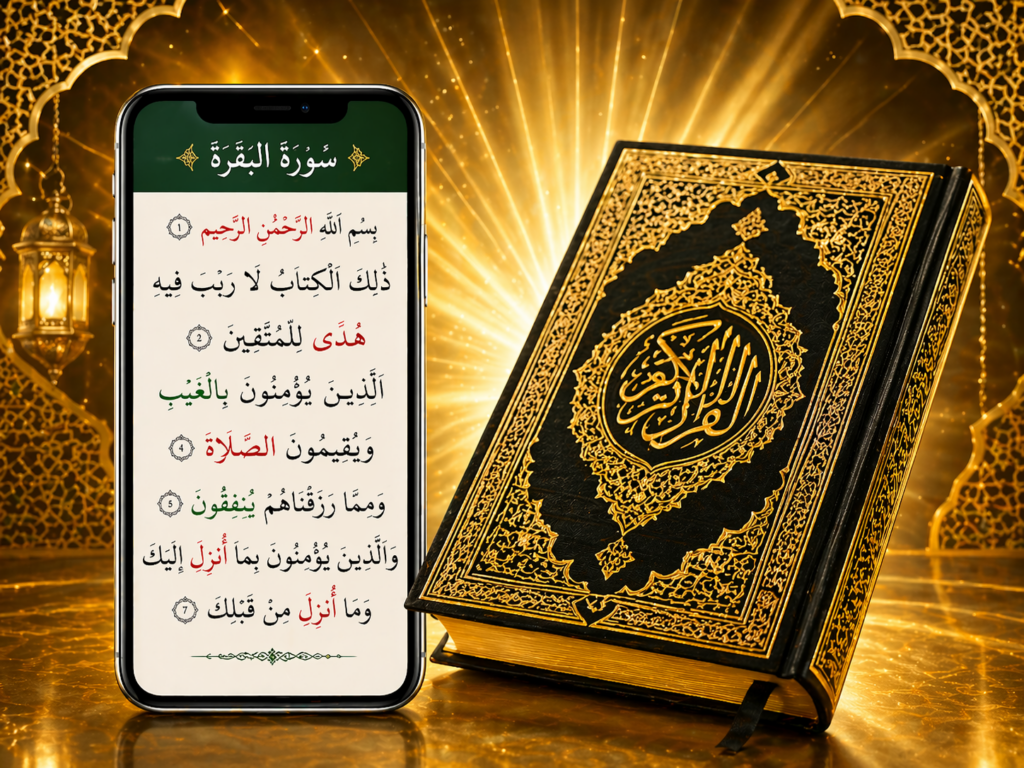 سُورَةَ البَقَرَةَ
بِسُمِ اَللَّهِ الرَّحْمُنِ الرَّحِيم ١
ذَٰلِكَ اَلْكِتاَبُ لَا رَبْبَ فِيهِ
هُدًى لِلّمُتَّقِينَ ٢
اَلَّذِينَ يُؤْمِنُونَ بِالْغَيْبِ
وَيُقِيمُونَ الصَّلَاةَ ٤
وَمِمَّا رَزَقْنَاهُمْ يُنفِقُونَ ٥
وَاَلَّذِينَ يُؤْمِنُونَ بِمَاَ أُنزِلَ إِلَيَكَ
وَمَا أُنزِلَ مِنْ قَبْلِكَ ٧
القرآن الكريم